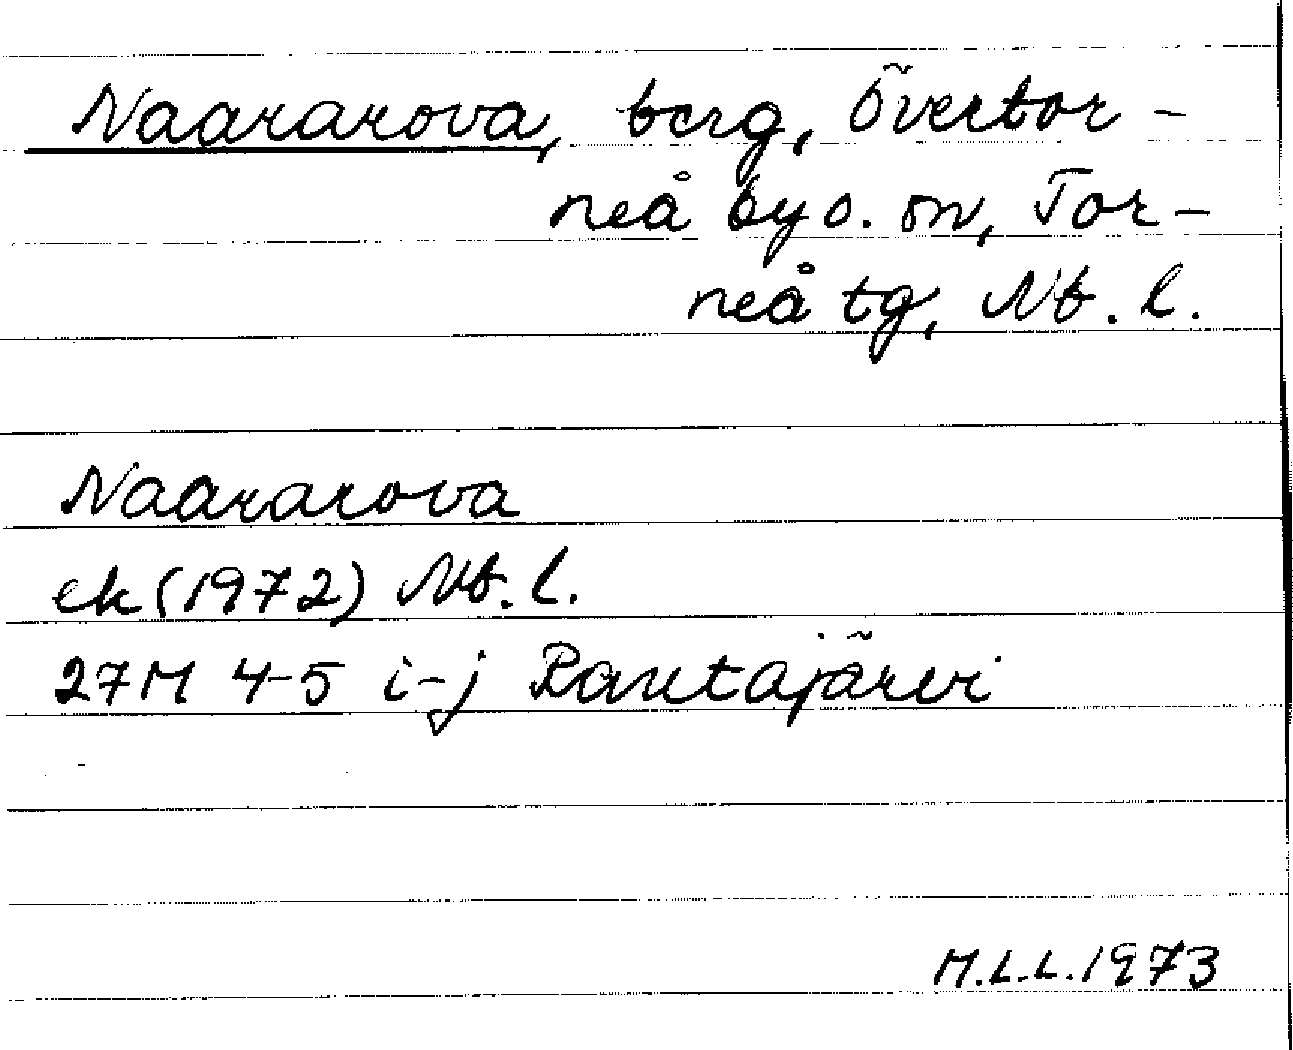 Naararova, berg, Övertor-
neå by o. sn, Tor-
neå tg, Nb. l.
Naararova
ek (1972) Nb. l.
27M 4-5 i-j Rantajärvi
M.L.L. 1973